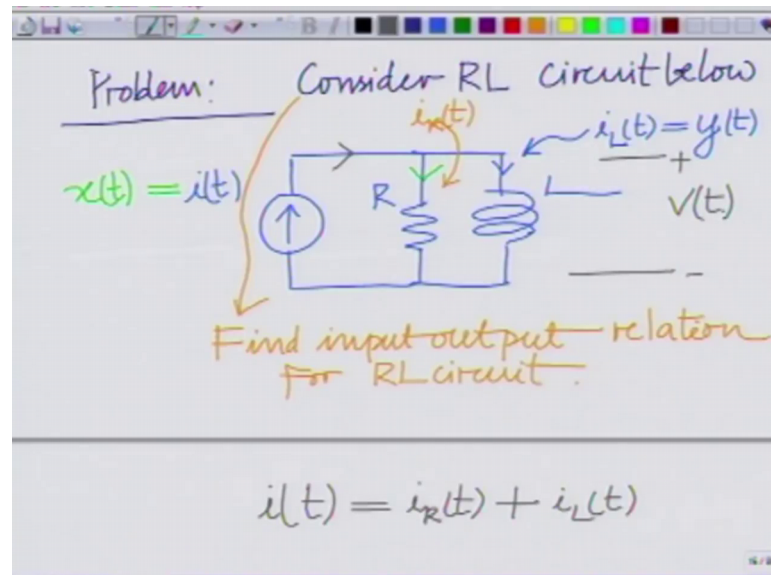 Problem: Consider RL circuit below
i_R(t)
i_L(t) = y(t)
x(t) = i(t)
R
L
+
V(t)
-
Find input output relation
For RL circuit.
i(t) = i_R(t) + i_L(t)